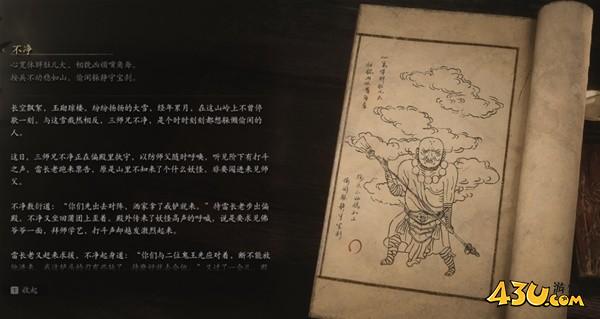 不净
心宽体胖肚儿大，相貌凶顽喷角每。
按兵不动稳如山，偷闲躲静守宝刹。
长空飘絮，玉砌琼楼，纷纷扬扬的大雪，经年累月，在这山岭上不曾停
歇一刻。与这雪截然相反，三师兄不净，是个时时刻刻都想躲懒偷闲的
人。
这日，三师兄不净正在偏殿里执守，以防师父随时呼唤，听见阶下有打斗
之声，雷长老跑来禀告，原是山里不知来了个什么妖怪，非要闯进来见师
父。
不净敷衍道：“你们先出去对阵，洒家拿了我铲就来。”待雷长老步出偏
殿，不净又坐回蒲团上直着。殿外传来了妖怪高声的呼喊，说是要求见佛
爷爷一面，拜师学艺，打斗声却越发激烈起来。
雷长老又赶来求援，不净起身道：“你们与二位鬼王先应对着，断不能放
收起
43U游
.com